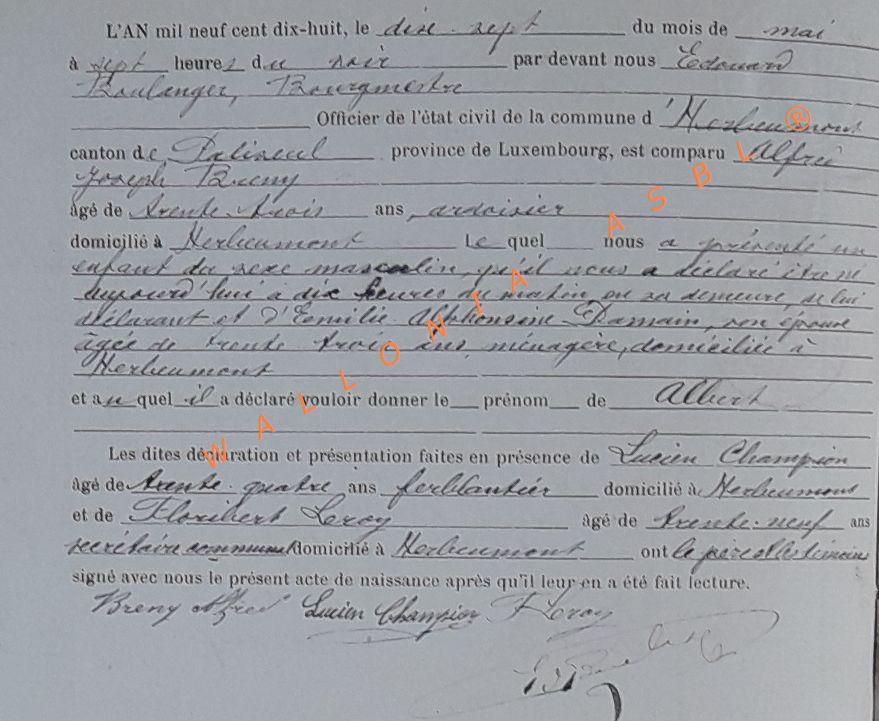 L'AN mil neuf cent dix-huit, le dix-sept du mois de mai
à sept heures du soir par devant nous Edouard
Boulanger, Bourgmestre
Officier de l'état civil de la commune d'Herbeumont
canton de Paliseul province de Luxembourg, est comparu Alfred
Joseph Breny
âgé de trente-trois ans, ardoisier
domicilié à Herbeumont Lequel nous a présenté un
enfant du sexe masculin, qu'il nous a déclaré être né
aujourd'hui à dix heures du matin, en sa demeure, de lui
déclarant et d'Emilie Alphonsine Damain, son épouse
âgée de trente trois ans, ménagère, domiciliée à
Herbeumont
et auquel il a déclaré vouloir donner le prénom de Albert
Les dites déclaration et présentation faites en présence de Lucien Champion
âgé de trente-quatre ans ferblantier domicilié à Herbeumont
et de Floribert Leroy âgé de trente-neuf ans
secrétaire communal domicilié à Herbeumont ont le père et les témoins
signé avec nous le présent acte de naissance après qu'il leur en a été fait lecture.
Breny Alfred Lucien Champion F Leroy
WALLONIA ASBL ®